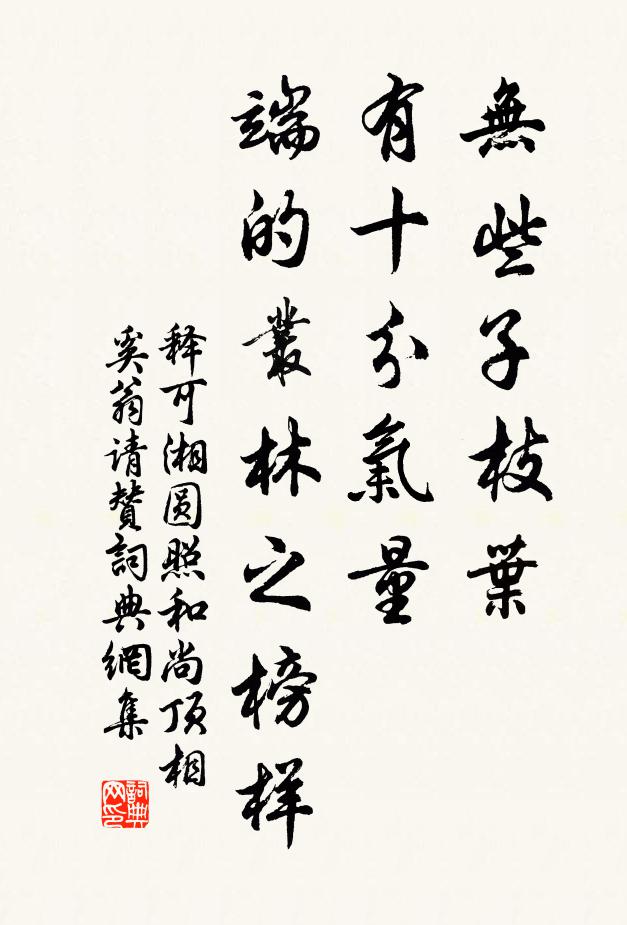 無些子枝葉
有十分氣量
端的叢林之榜样
释可湘圆照和尚顶相
奚翁请贊詞典網集
詞典网印